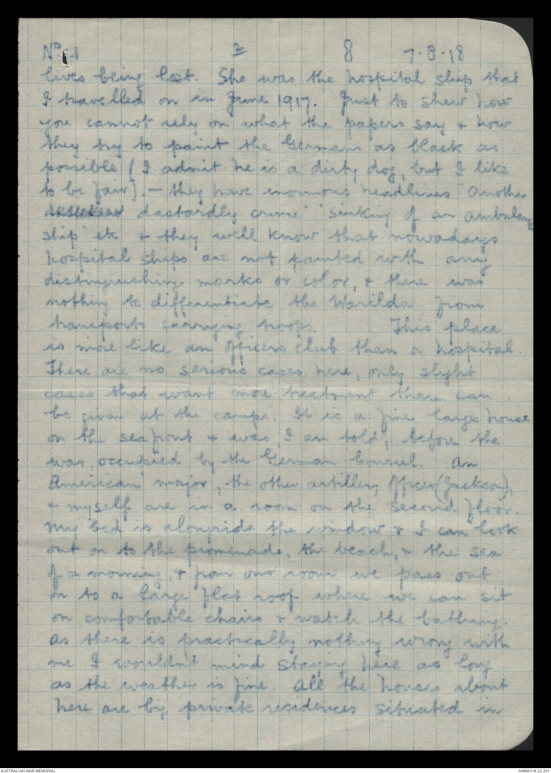 No 41 2 8 7.8.18
lives being lost. She was the hospital ship that
I travelled on in June 1917. Just to shew how
you cannot rely on what the papers say & how
they try to paint the Germans as black as
possible (I admit he is a dirty dog, but I like
to be fair). - they have enormous headlines "Another
dastardly crime" "Sinking of an ambulance
ship" etc & they well know that nowadays
hospital ships are not painted with any
distinguishing marks or color, & there was
nothing to differentiate the Warilda from
transports carrying troops. This place
is more like an officers club than a hospital.
There are no serious cases here, only slight
cases that want more treatment than can
be given at the camps. It is a fine large house
on the seafront & was, I am told, before the
war, occupied by the German Consul. An
American major, the other artillery officer (Jackson),
& myself are in a room on the second floor.
My bed is alongside the window & I can look
out on to the promenade, the beach, & the sea
of a morning, & from our room we pass out
on to a large flat roof where we can sit
on comfortable chairs & watch the bathing.
As there is practically nothing wrong with
me I wouldn't mind staying here as long
as the weather is fine. All the houses about
here are big private residences situated in
AUSTRALIAN WAR MEMORIAL